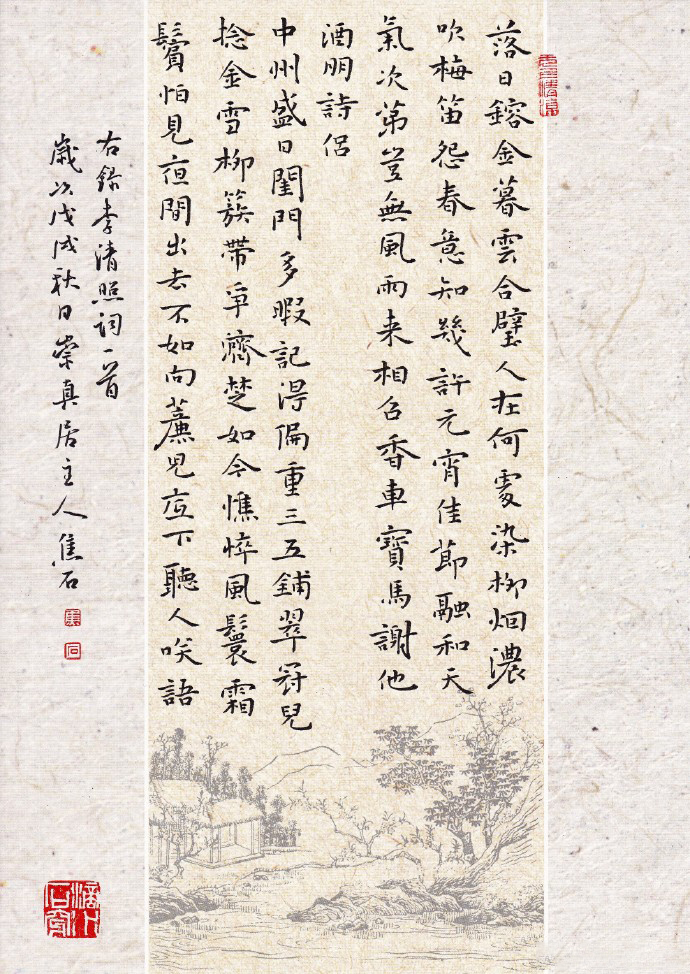 落日鎔金暮雲合璧人在何處染柳烟濃
吹梅笛怨春意知幾許元宵佳節融和天
氣次第豈無風雨来相召香車寶馬謝他
酒朋詩侶
中州盛日閨門多暇記得偏重三五鋪翠冠兒
捻金雪柳簇帶爭濟楚如今憔悴風鬟霜
鬢怕見夜間出去不如向簾兒底下聽人笑語
右錄李清照詞一首
歲次戊戌秋日崇真居主人焦石
焦
石
滴水石穿